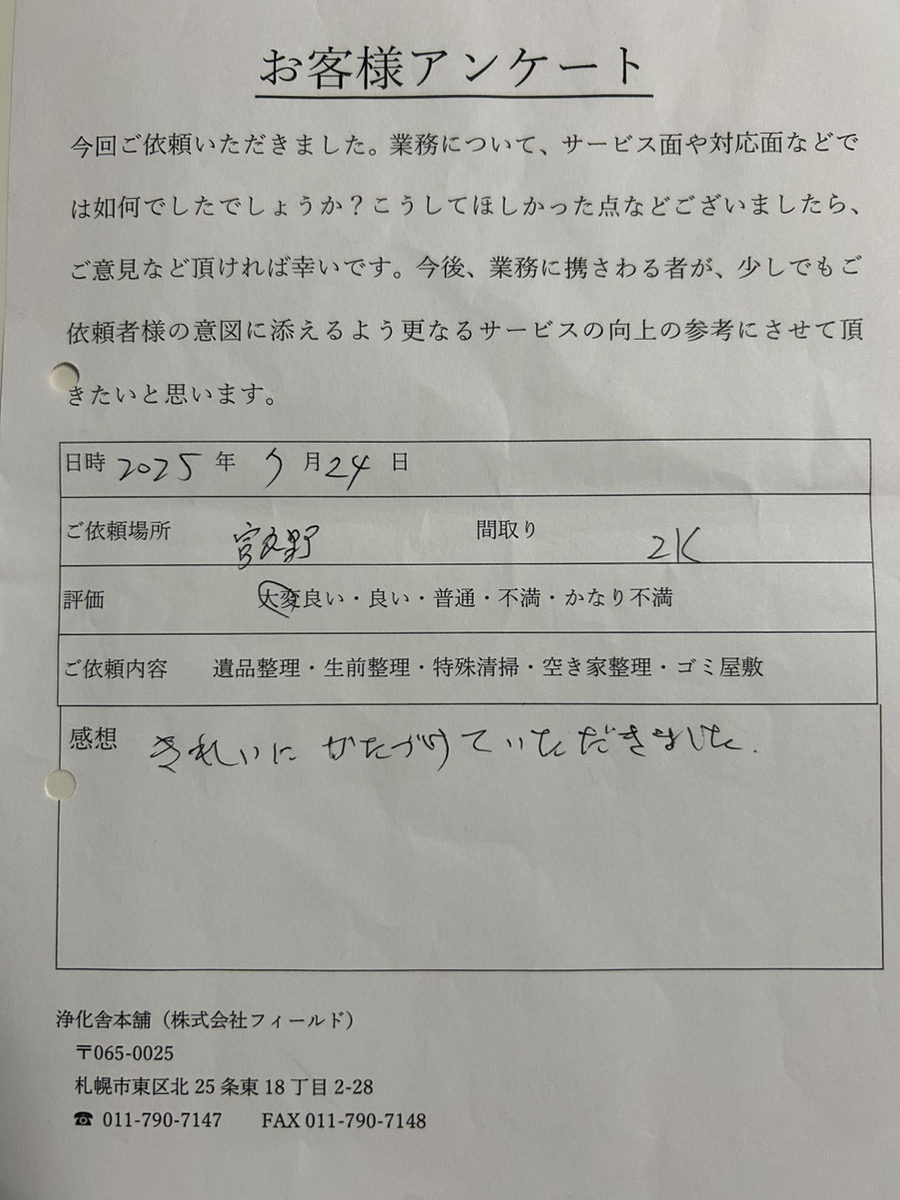 お客様アンケート
今回ご依頼いただきました。業務について、サービス面や対応面などで
は如何でしたでしょうか？こうしてほしかった点などございましたら、
ご意見など頂ければ幸いです。今後、業務に携さわる者が、少しでもご
依頼者様の意図に添えるよう更なるサービスの向上の参考にさせて頂
きたいと思います。
日時 2025 年 7 月 24 日
ご依頼場所 間取り 2K
評価 大変良い・良い・普通・不満・かなり不満
ご依頼内容 遺品整理・生前整理・特殊清掃・空き家整理・ゴミ屋敷
感想 きれいに かたづけていただきました.
浄化舎本舗（株式会社フィールド）
〒065-0025
札幌市東区北 25 条東 18 丁目 2-28
☎ 011-790-7147 FAX 011-790-7148